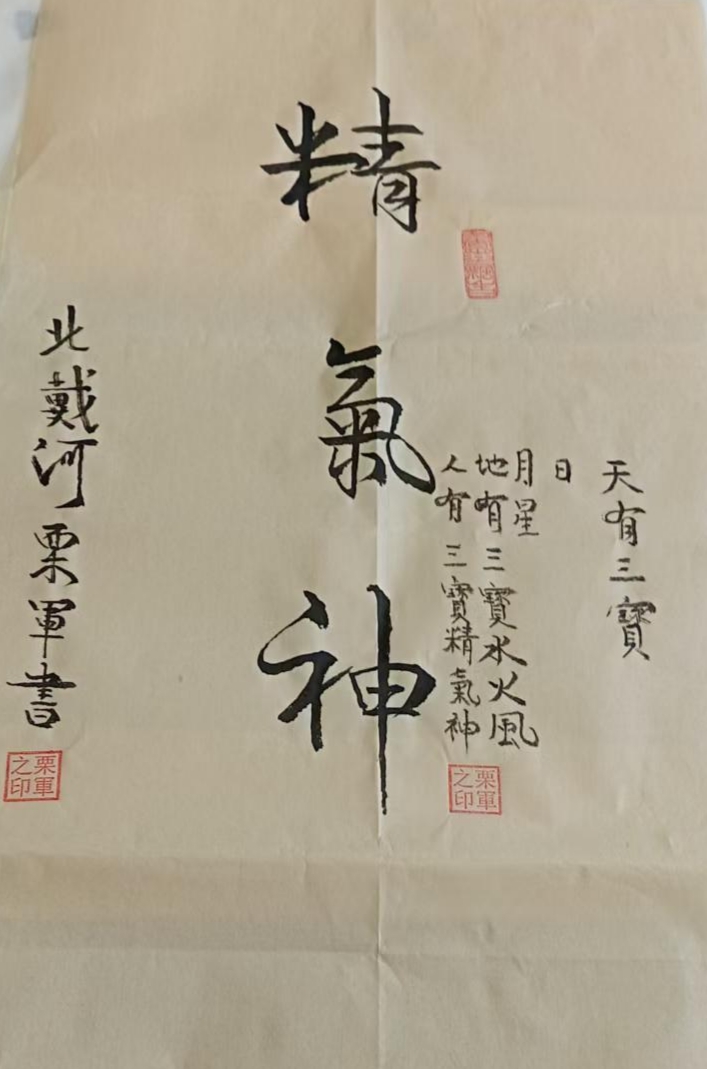 天有三寶
日
月星
地有三寶水火風
人有三寶精氣神
精氣神
北戴河栗軍書
栗軍之印
栗軍之印